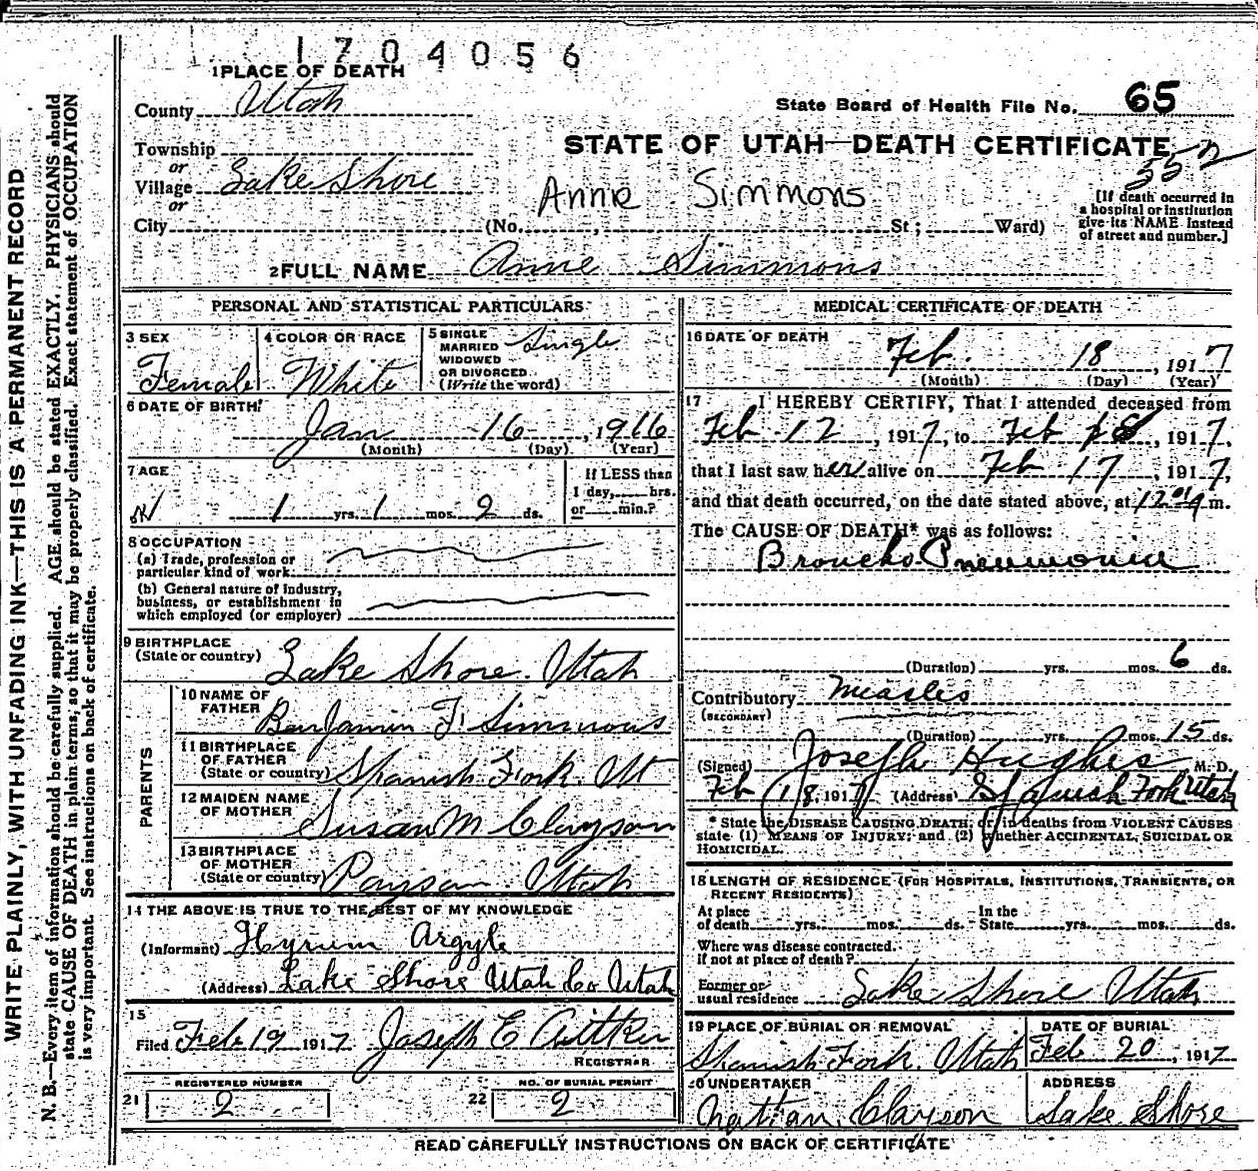 1704056
1 PLACE OF DEATH
County Utah
State Board of Health File No. 65
Township
STATE OF UTAH—DEATH CERTIFICATE
or
Village Lake Shore
Annie Simmons
or
[If death occurred in
a hospital or institution
give its NAME instead
of street and number.]
City (No. , St ; Ward)
2 FULL NAME Annie Simmons
PERSONAL AND STATISTICAL PARTICULARS
3 SEX
Female
4 COLOR OR RACE
White
5 SINGLE
MARRIED
WIDOWED
OR DIVORCED
(Write the word)
Single
6 DATE OF BIRTH
Jan 16 , 1916
(Month) (Day) (Year)
7 AGE
1 yrs. 1 mos. 2 ds.
If LESS than
1 day, hrs.
or min.?
8 OCCUPATION
(a) Trade, profession or
particular kind of work
(b) General nature of industry,
business, or establishment in
which employed (or employer)
9 BIRTHPLACE
(State or country) Lake Shore. Utah
PARENTS
10 NAME OF
FATHER
Benjamin F. Simmons
11 BIRTHPLACE
OF FATHER
(State or country) Spanish Fork. Ut
12 MAIDEN NAME
OF MOTHER
Susan M Clayson
13 BIRTHPLACE
OF MOTHER
(State or country) Payson Utah
14 THE ABOVE IS TRUE TO THE BEST OF MY KNOWLEDGE
(Informant) Hyrum Argyle
(Address) Lake Shore Utah Co Utah
15
Filed Feb 19 1917 Joseph E Aitken
REGISTRAR
REGISTERED NUMBER
21 2
NO. OF BURIAL PERMIT
22 2
MEDICAL CERTIFICATE OF DEATH
16 DATE OF DEATH
Feb. 18 , 1917
(Month) (Day) (Year)
17 I HEREBY CERTIFY, That I attended deceased from
Feb 12 , 1917, to Feb 18 , 1917,
that I last saw her alive on Feb 17 , 1917,
and that death occurred, on the date stated above, at m.
The CAUSE OF DEATH* was as follows:
Broncho Pneumonia
(Duration) yrs. mos. 6 ds.
Contributory Measles
(SECONDARY)
(Duration) yrs. mos. 15 ds.
(Signed) Joseph Hughes M. D.
Feb 18, 191 (Address) Spanish Fork Utah
* State the DISEASE CAUSING DEATH; or, in deaths from VIOLENT CAUSES
state (1) MEANS OF INJURY; and (2) whether ACCIDENTAL, SUICIDAL OR
HOMICIDAL.
18 LENGTH OF RESIDENCE (FOR HOSPITALS, INSTITUTIONS, TRANSIENTS, OR
RECENT RESIDENTS)
At place
of death yrs. mos. ds.
In the
State yrs. mos. ds.
Where was disease contracted
if not at place of death?
Former or
usual residence Lake Shore Utah
19 PLACE OF BURIAL OR REMOVAL
Spanish Fork. Utah
DATE OF BURIAL
Feb 20 , 1917
20 UNDERTAKER
Nathan Clayson
ADDRESS
Lake Shore
READ CAREFULLY INSTRUCTIONS ON BACK OF CERTIFICATE
WRITE PLAINLY, WITH UNFADING INK—THIS IS A PERMANENT RECORD
N. B.—Every item of information should be carefully supplied. AGE should be stated EXACTLY. PHYSICIANS should
state CAUSE OF DEATH in plain terms, so that it may be properly classified. Exact statement of OCCUPATION
is very important. See instructions on back of certificate.